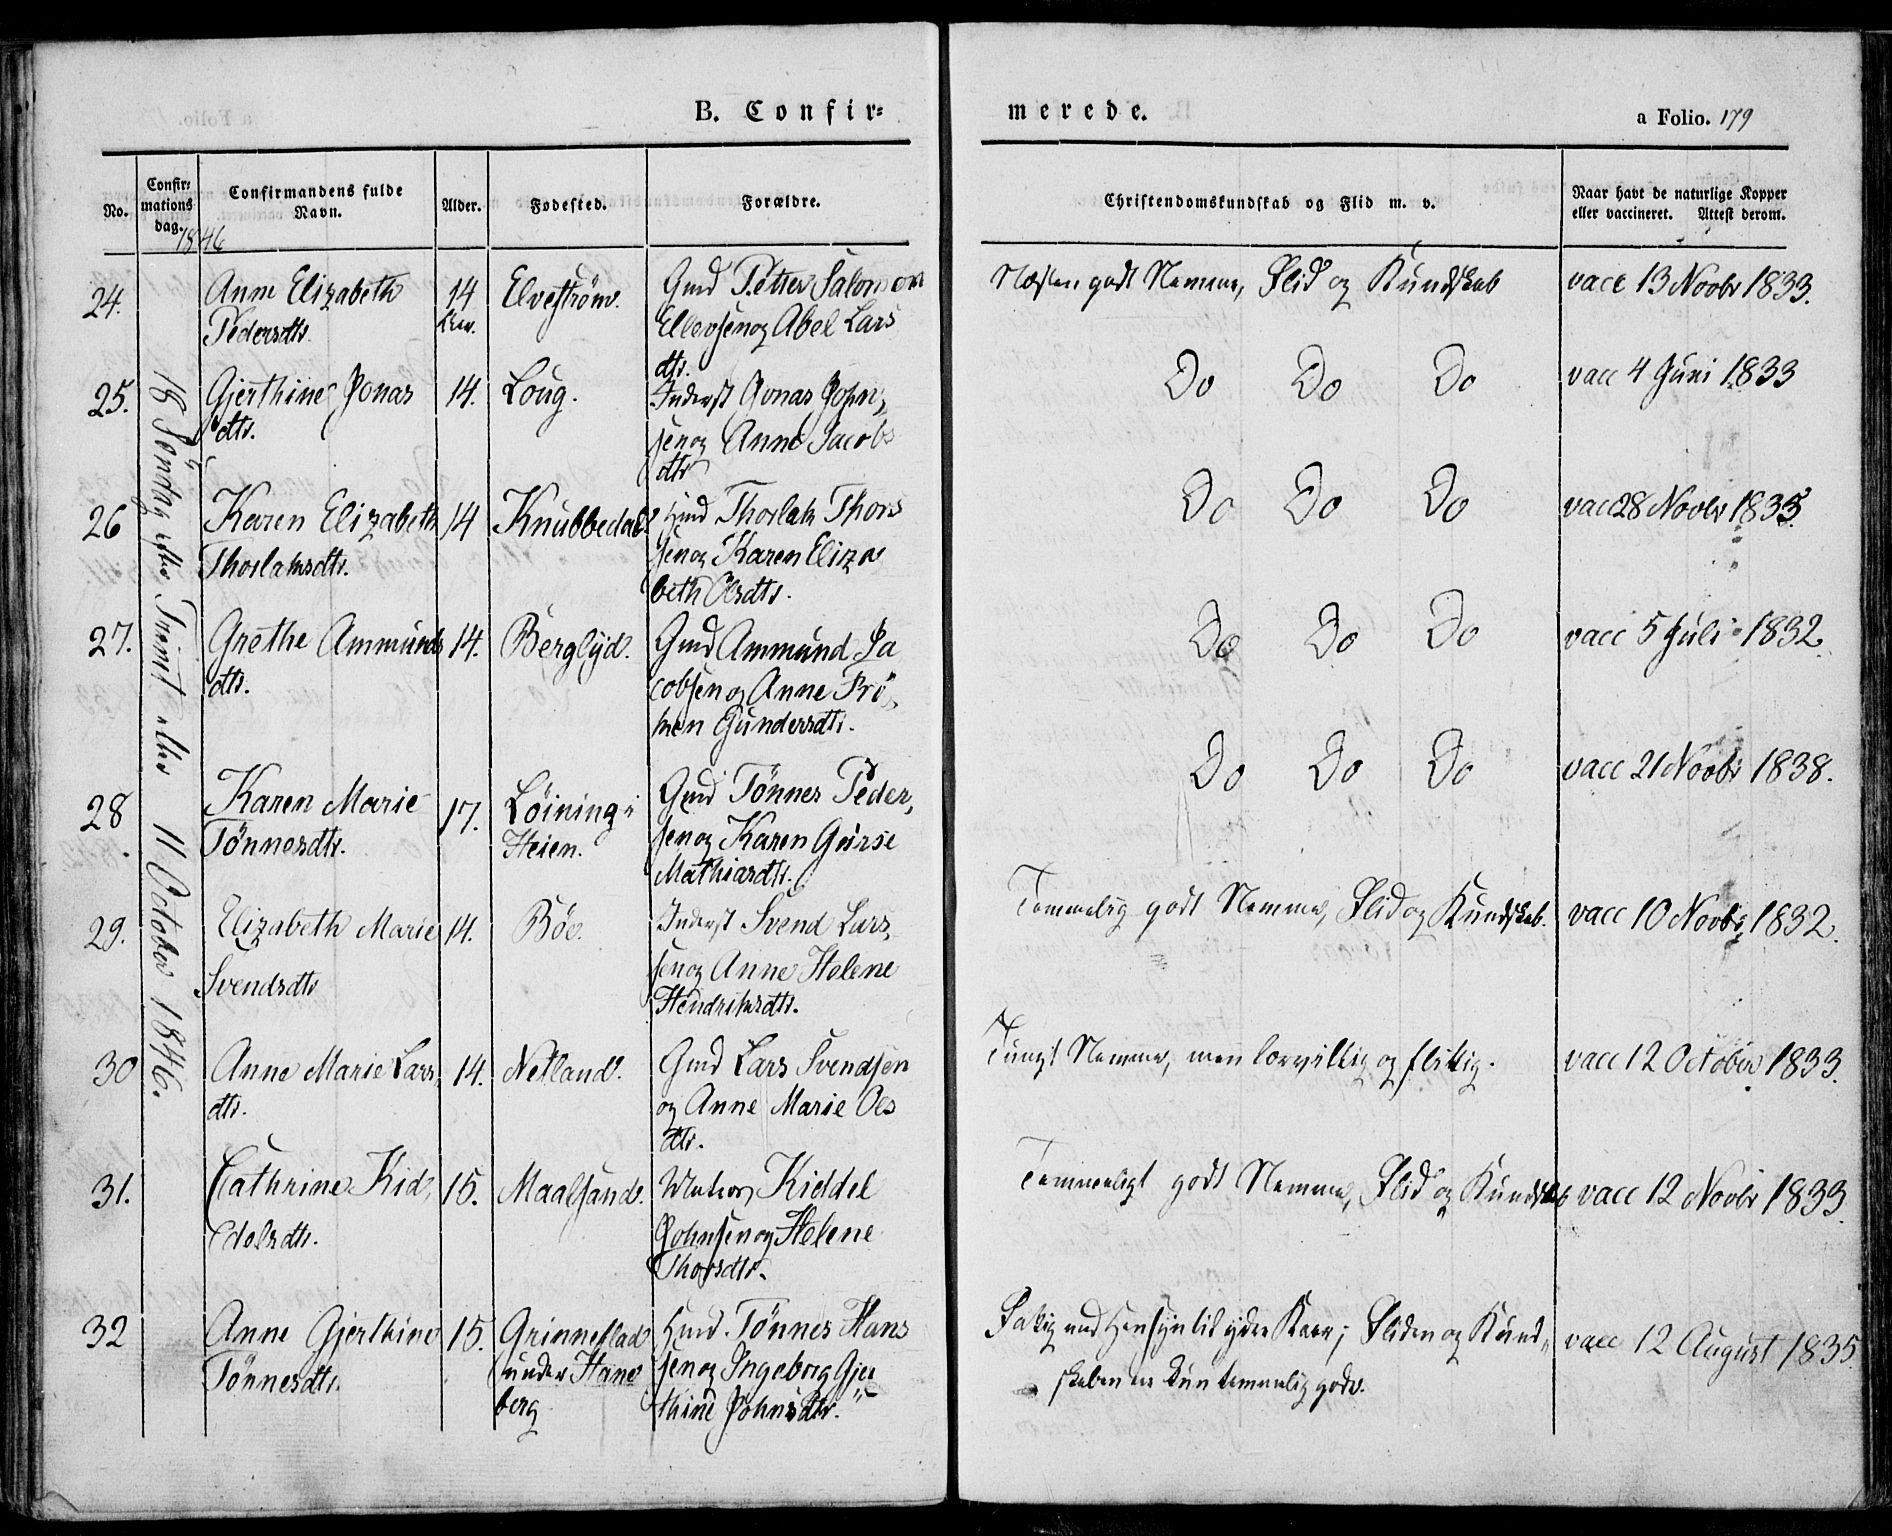 B. Confir=
merede.
a Folio. 179
No.
Confir=
mations
dag.
Confirmandens fulde
Navn.
Alder.
Fødested.
Forældre.
Christendomskundskab og Flid m. v.
Naar havt de naturlige Kopper
eller vaccineret. Attest derom.
1846
18 Söndag efter Trinit eller 11 October 1846.
24.
Anne Elizabeth
Pedersdtr.
14
Elvestrøm.
Gmd Petter Salomon
Ellevsen og Abel Lars
dtr.
Næsten godt Nemme, Flid og Kundskab
vacc 13 Novbr 1833.
25.
Gjerthine Jonas
dtr.
14.
Loug.
Inderst Jonas John,
sen og Anne Jacobs
dtr
Do Do Do
vacc 4 Juni 1833
26
Karen Elizabeth
Thorlaksdtr.
14
Knubbedal
Hmd Thorlak Thors
sen og Karen Eliza
beth Olsdtr.
Do Do Do
vacc 28 Novbr 1833.
27.
Grethe Ammunds
dtr.
14.
Berglyd.
Gmd Ammund Ja
cobsen og Anne Frö,
ken Gundersdtr.
Do Do Do
vacc 5 Juli 1832.
28
Karen Marie
Tönnesdtr.
17.
Løining i
Heien.
Gmd Tönnes Peder,
sen og Karen Gurse
Mathiasdtr.
Do Do Do
vacc 21 Novbr 1838.
29.
Elizabeth Marie
Svendsdtr
14.
Böe.
Inderst Svend Lars,
sen og Anne Helene
Hendriksdtr.
Temmelig godt Nemme, Flid og Kundskab.
vacc 10 Novbr 1832.
30
Anne Marie Lars,
dtr.
14.
Netland.
Gmd Lars Svendsen
og Anne Marie Ols
dtr.
Tungt Nemme, men lærvillig og flittig.
vacc 12 October 1833.
31.
Cathrine Kid,
delsdtr.
15.
Maalsand.
Kiddel
Johnsen og Helene
Thorsdtr.
Temmeligt godt Nemme, Flid og Kundskab
vacc 12 Novbr 1833.
32
Anne Gjerthine
Tönnesdtr.
15.
Grinneslad
under Hane
berg
Hmd Tönnes Hans
sen og Ingeborg Gjer
thine Johnsdtr.
Fattig med Hensyn til ydre Kaar; Fliden og Kund=
skaben er kun temmelig gode.
vacc 12 August 1835.